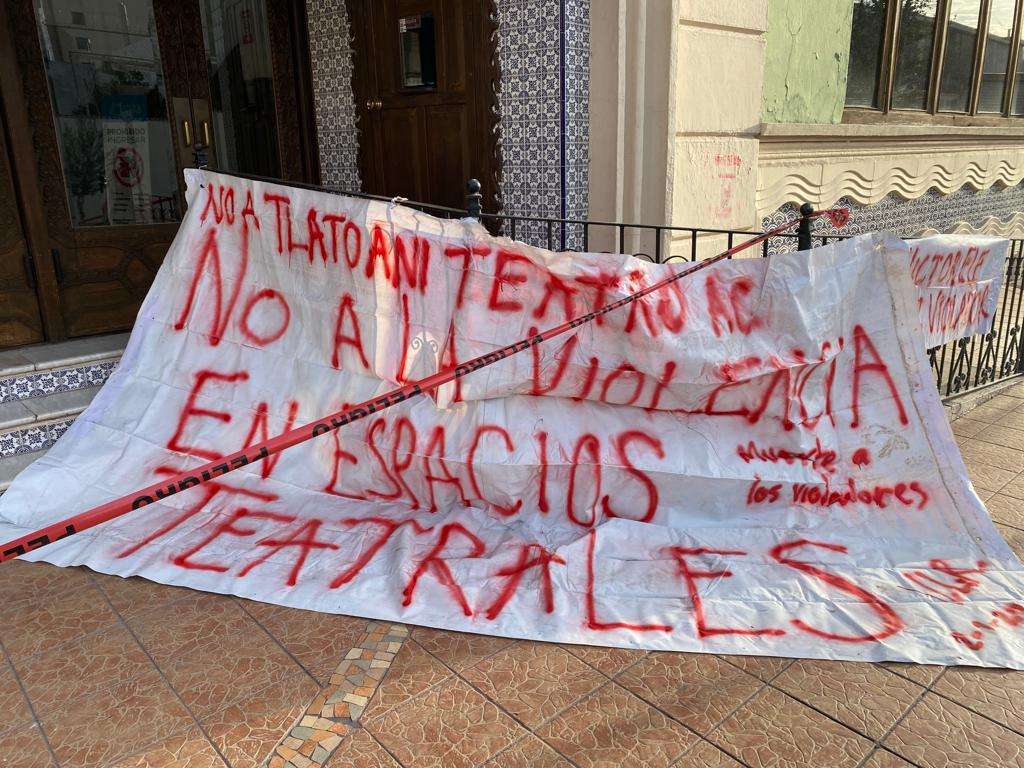 PROHIBIDO
NO A TLATOANI TEATRO AC
NO A LA VIOLENCIA
EN ESPACIOS
TEATRALES
Muerte a
los violadores
PELIGRO PELIGRO PELIGRO PELIGRO